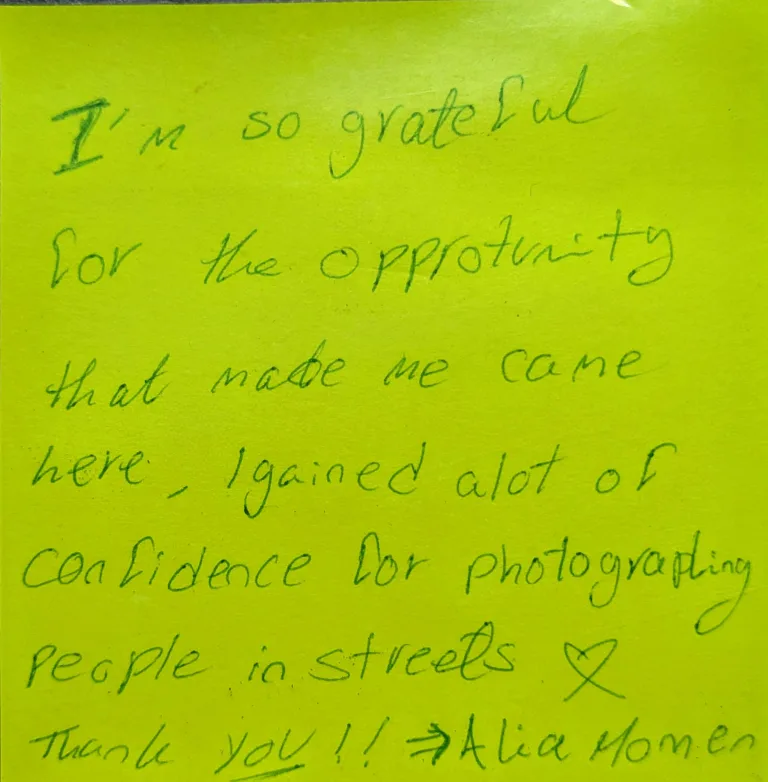 I'm so grateful
for the opprotunity
that made me came
here, I gained alot of
confidence for photographing
people in streets ♡
Thank you!! → Alia Momen